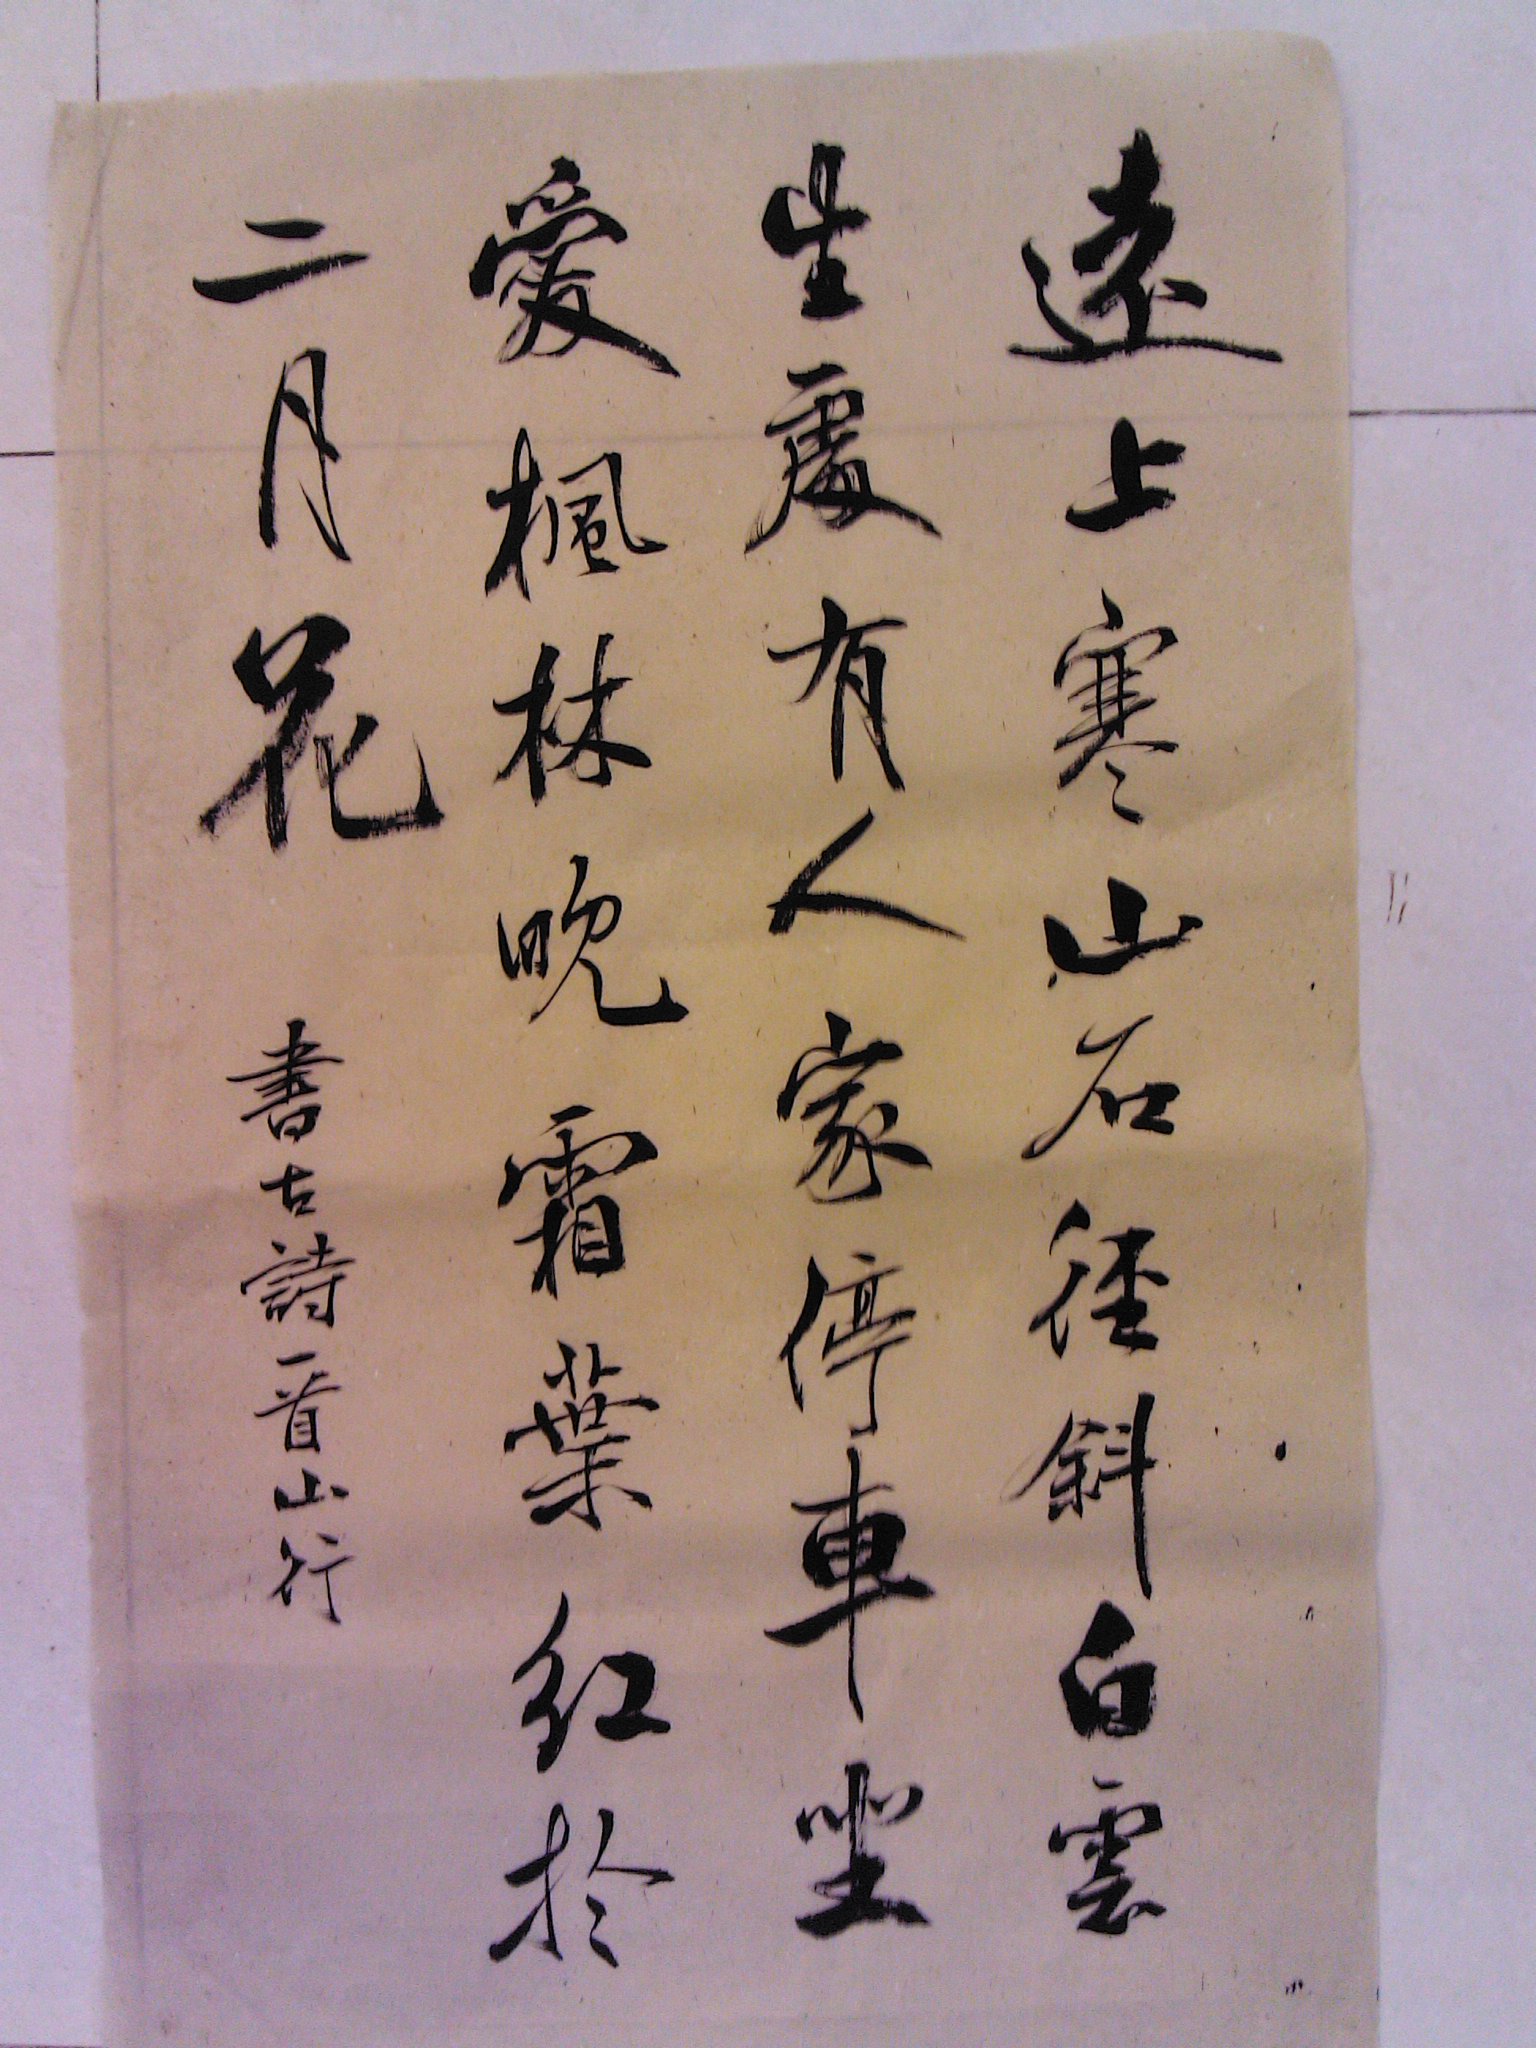 遠上寒山石徑斜白雲
生處有人家停車坐
愛楓林晚霜葉红於
二月花
書古詩一首山行